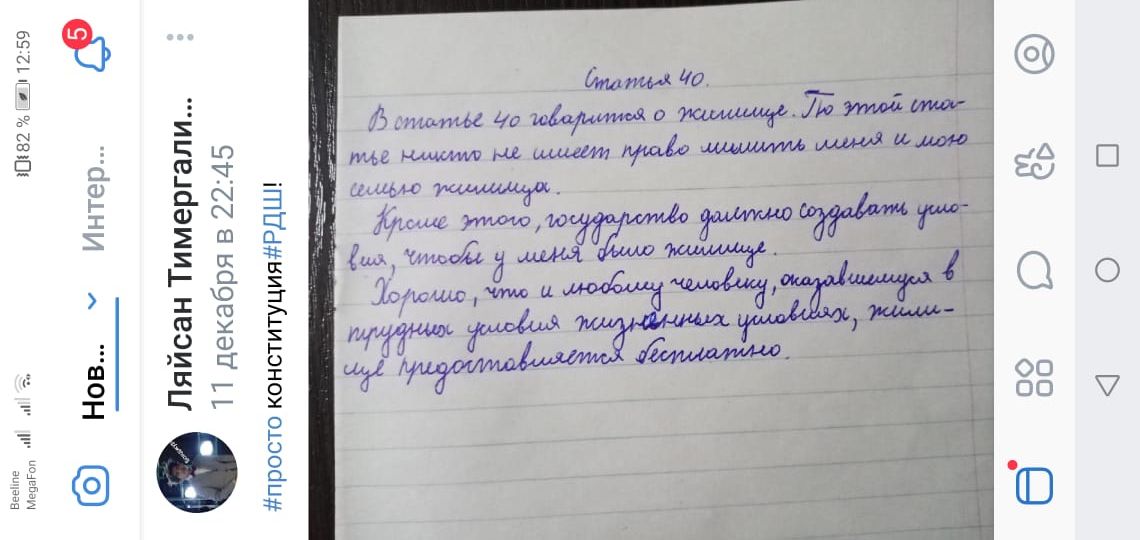 Beeline
MegaFon
82 %
12:59
Нов...
Интер...
5
Ляйсан Тимергали...
11 декабря в 22:45
#просто конституция#РДШ!
Статья 40.
В статье 40 говорится о жилище. По этой ста-
тье никто не имеет право лишить меня и мою
семью жилища.
Кроме этого, государство должно создавать усло-
вия, чтобы у меня было жилище.
Хорошо, что и любому человеку, оказавшемуся в
трудных условия жизненных условиях, жили-
ще предоставляется бесплатно.